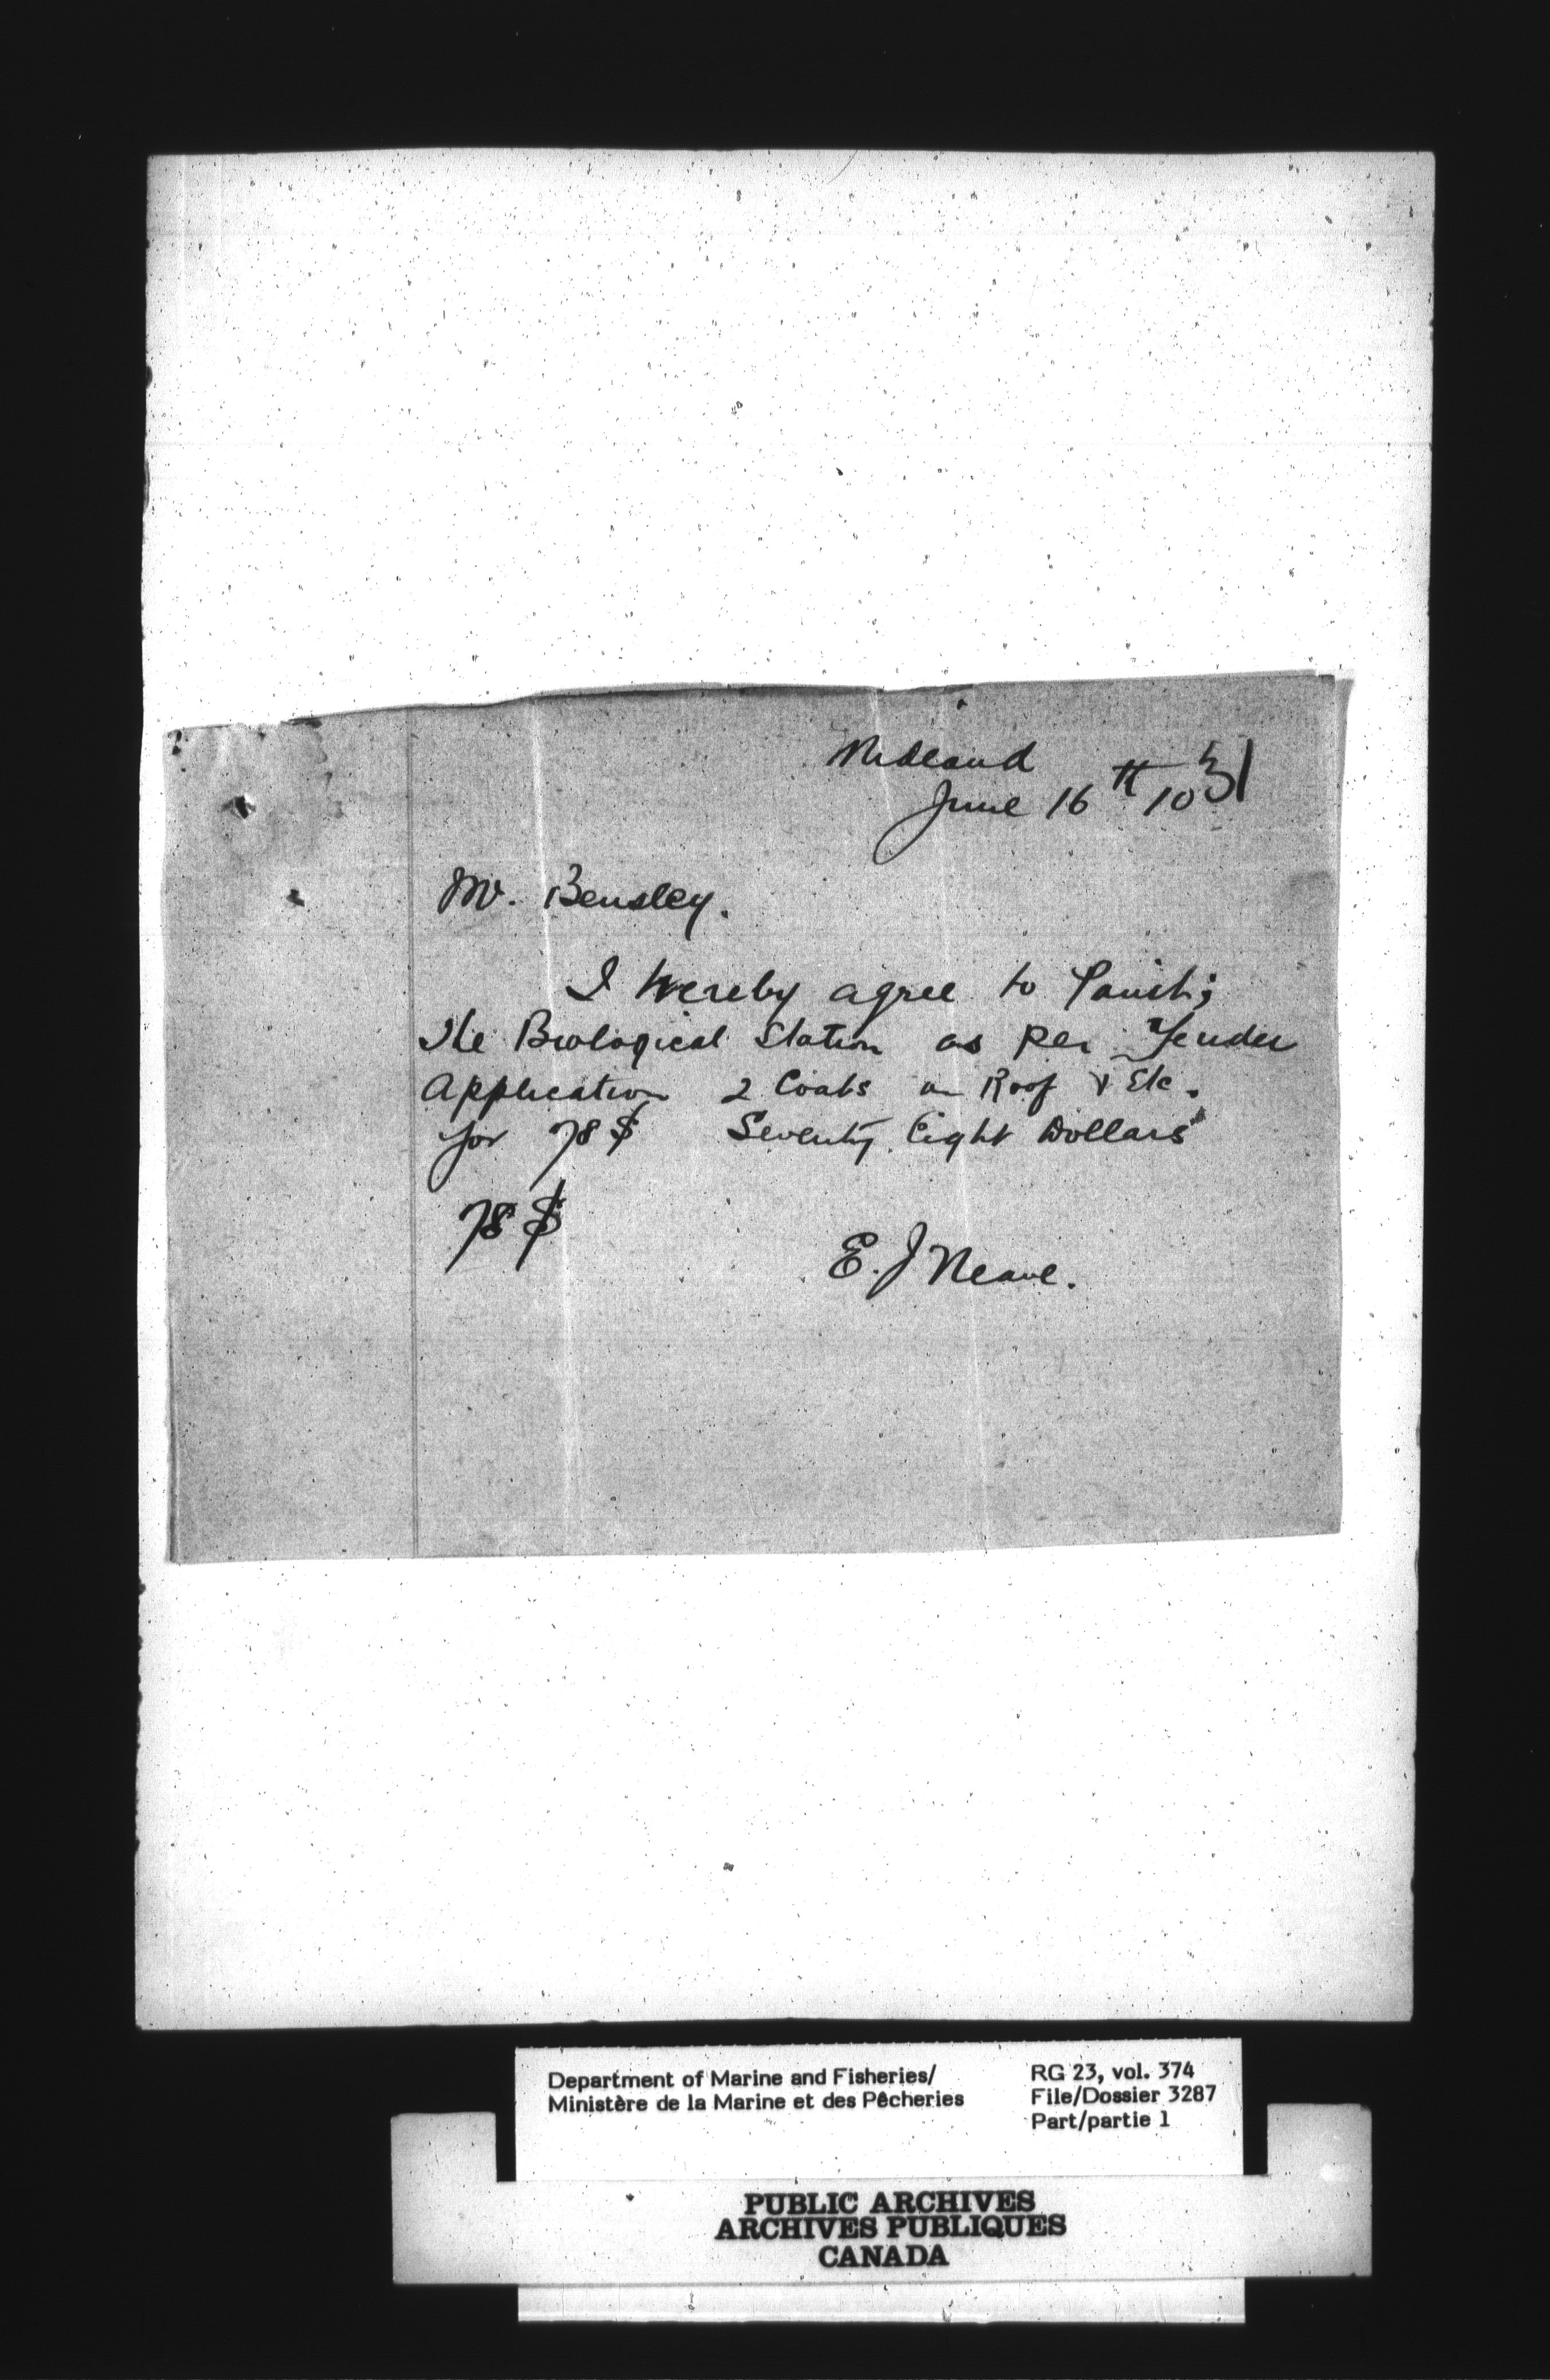 Midland
June 16th 10 31
Mr. Bensley.
I hereby agree to Paint;
The Biological Station as per Tender
Application 2 Coats on Roof & Etc.
for 78 $ Seventy Eight Dollars
78 $
E. J Neave.
Department of Marine and Fisheries/
Ministère de la Marine et des Pêcheries
RG 23, vol. 374
File/Dossier 3287
Part/partie 1
PUBLIC ARCHIVES
ARCHIVES PUBLIQUES
CANADA